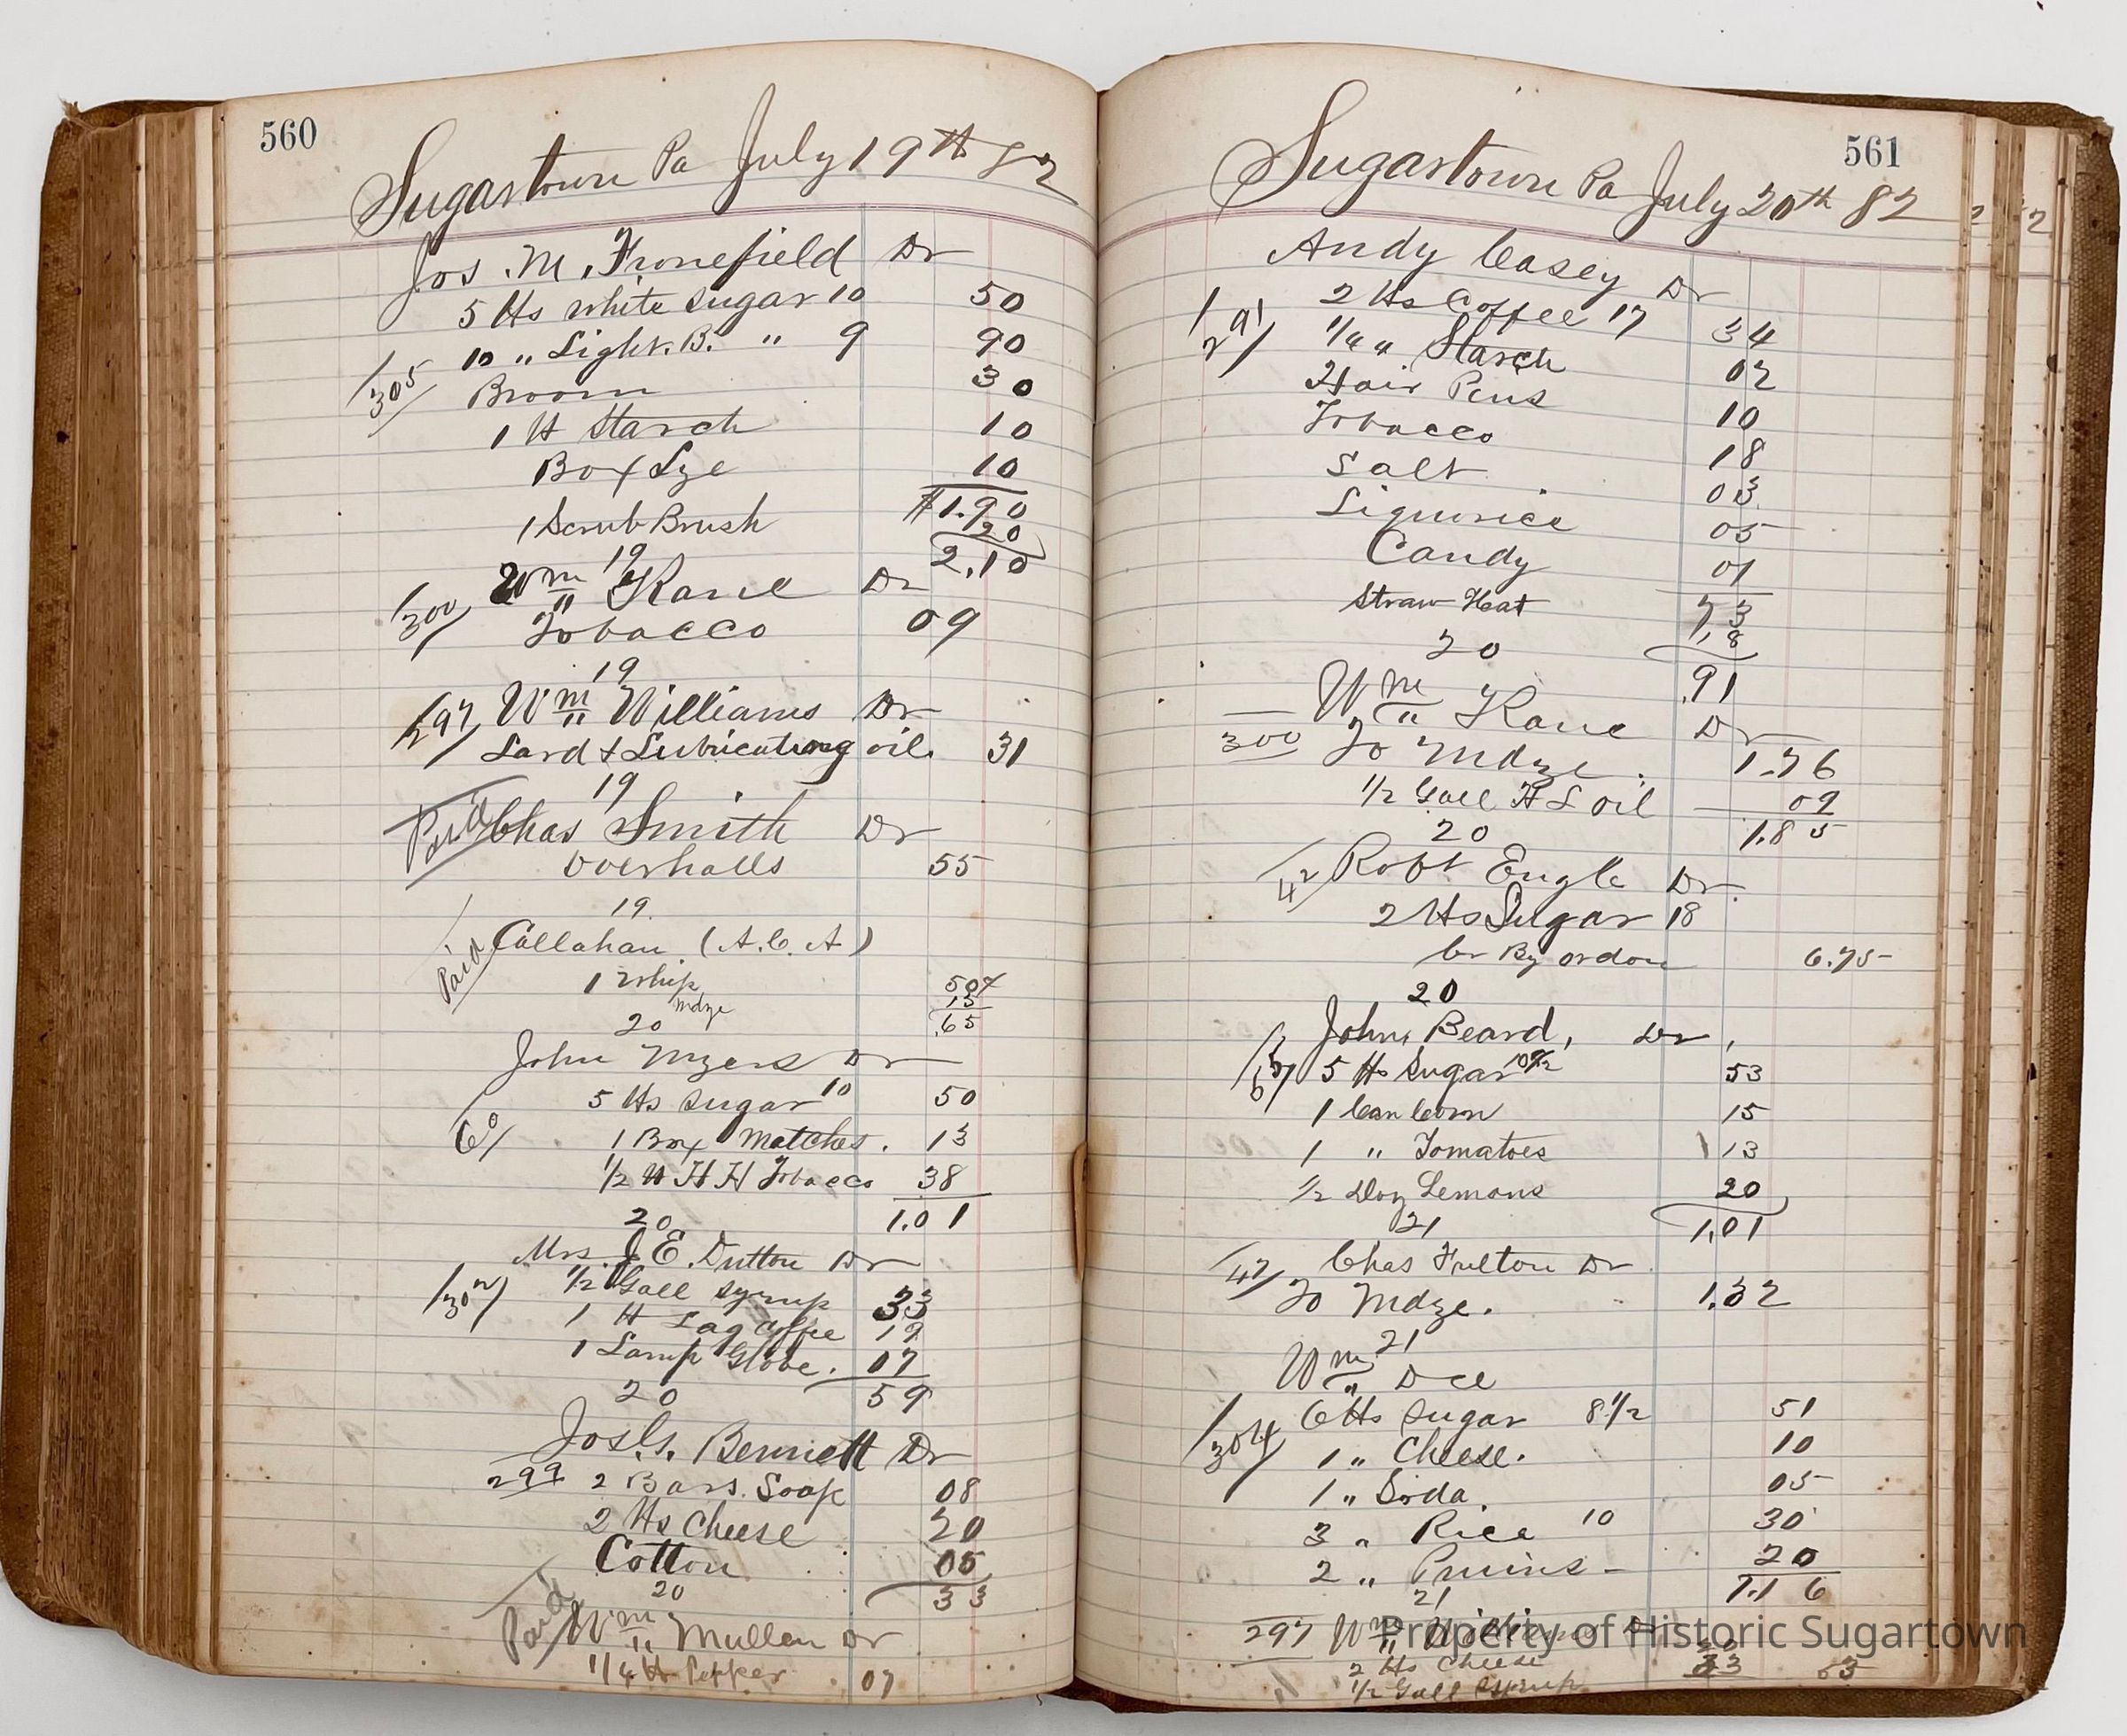 560
Sugartown Pa July 19th 82
Jos. M. Fronefield Dr
5 lbs white sugar 10 50
10 " Light. B. " 9 90
305 Broom 30
1 lb Starch 10
Box Lye 10
$1.90
1 Scrub Brush 20
2.10
19
300 Wm Kane Dr
Tobacco 09
19
297 Wm Williams Dr
Lard & Lubricating oil. 31
19
Paid Chas Smith Dr
Overhalls 55
19.
Paid Callahan (A.C.A)
1 Whip 50
Mdze 15
.65
20
John Myers Dr
5 lbs Sugar 10 50
60 1 Box Matches. 13
1/2 lb H H Tobacco 38
1.01
20
Mrs. J. E. Dutton Dr
302 1/2 Gall Syrup 33
1 lb Lag Coffee 19
1 Lamp Globe. 07
59
20
Jos. G. Bennett Dr
299 2 Bars. Soap 08
2 lbs Cheese 20
Cotton 05
33
20
Paid Wm Mullen Dr
1/4 lb Pepper 07
561
Sugartown Pa July 20th 82
Andy Casey Dr
291 2 lbs Coffee 17 34
1/4 " Starch 02
Hair Pins 10
Tobacco 18
Salt 03
Liquorice 05
Candy 01
73
Straw Hat 18
.91
20
Wm Kane Dr
300 To Mdze. 1.76
1/2 Gall H L oil 09
1.85
20
42 Robt Engle Dr.
2 lbs Sugar 18
Cr By ordon 6.75
20
John Beard, Dr,
5 lbs Sugar 10 1/2 53
1 Can Corn 15
1 " Tomatoes 13
1/2 Doz Lemons 20
1.01
21
47 Chas Fulton Dr
To Mdze. 1.32
21
Wm Dce
304 6 lbs Sugar 8 1/2 51
1 " Cheese. 10
1 " Soda. 05
3 " Rice 10 30
2 " Pruins - 20
1.16
21
297 Wm Williams Dr
2 lbs Cheese
1/2 Gall Syrup 33 53
Property of Historic Sugartown